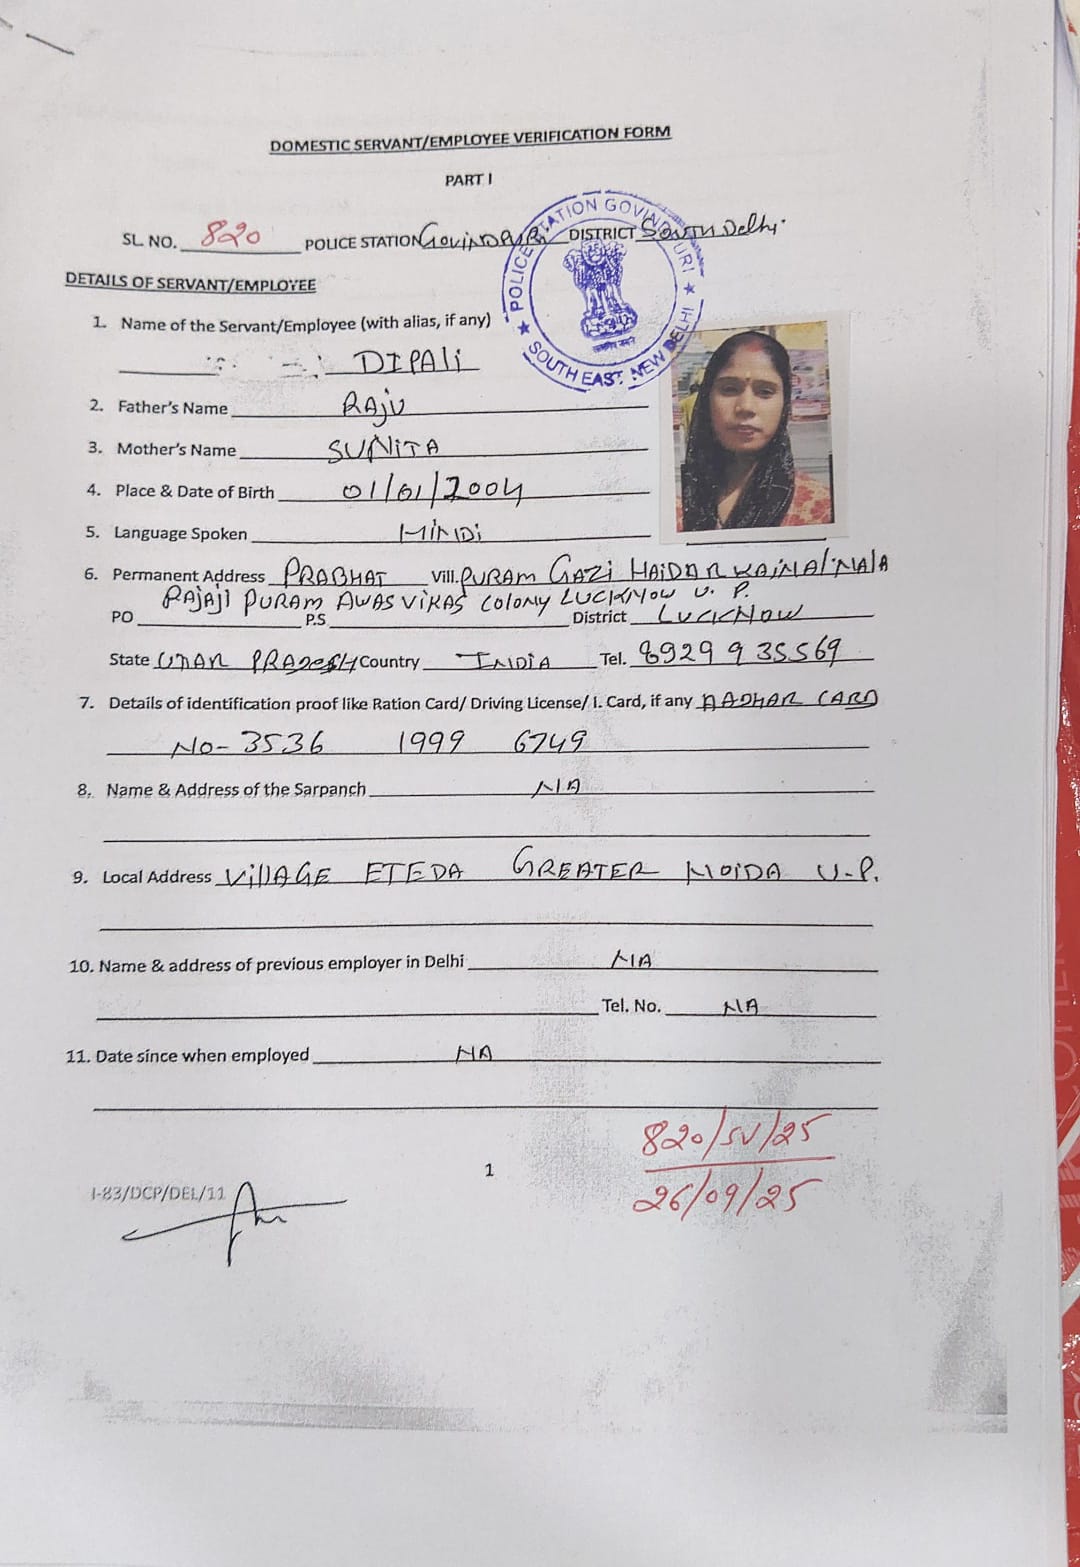 DOMESTIC SERVANT/EMPLOYEE VERIFICATION FORM
PART I
SL. NO. 820 POLICE STATION GOVINDPURI DISTRICT SOUTH Delhi.
POLICE STATION GOVINDPURI ★ SOUTH EAST NEW DELHI ★
DETAILS OF SERVANT/EMPLOYEE
1. Name of the Servant/Employee (with alias, if any)
DIPALI
2. Father's Name RAJU
3. Mother's Name SUNITA
4. Place & Date of Birth 01/01/2004
5. Language Spoken HINDI
6. Permanent Address PRABHAT Vill. PURAM GAZI HAIDAR KAINAL NALA
RAJAJI PURAM AWAS VIKAS COLONY LUCKNOW U. P.
PO P.S District LUCKNOW
State UTAR PRADESH Country INDIA Tel. 8929935569
7. Details of identification proof like Ration Card/ Driving License/ I. Card, if any AADHAR CARD
NO- 3536 1999 6749
8. Name & Address of the Sarpanch NA
9. Local Address VILLAGE ETEDA GREATER NOIDA U.P.
10. Name & address of previous employer in Delhi NA
Tel. No. NA
11. Date since when employed NA
820/SV/25
26/09/25
1
I-83/DCP/DEL/11